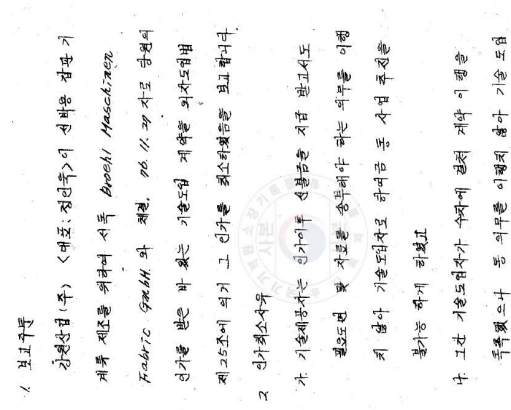 1. 보고주문
강원산업(주) <대표: 정인욱>이 선박용 갑판 기
계류 제조를 위하여 서독 Broehl Maschinen
Fabric GmbH. 와 체결, 76. 11. 29 자로 당원의
인가를 받은 바 있는 기술도입 계약을 외자도입법
제 25조에 의거 그 인가를 취소하였음을 보고합니다.
2. 인가취소사유
가. 기술제공자는 인가이후 선불금을 지급 받고서도
필요도면 및 자료를 송부해야 하는 의무를 이행
치 않아 기술도입자로 하여금 동 사업 추진을
불가능 하게 하였고
나. 그간 기술도입자가 수차에 걸쳐 계약 이행을
독촉했으나 동 의무를 이행치 않아 기술 도입